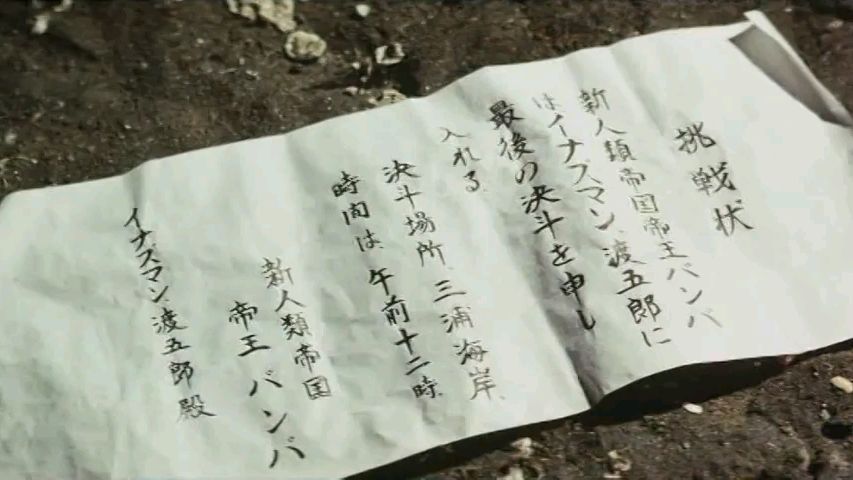 挑戦状
新人類帝国帝王バンバ
はイナズマン、渡五郎に
最後の決斗を申し
入れる
決斗場所、三浦海岸、
時間は、午前十二時、
新人類帝国
帝王バンバ
イナズマン、渡五郎殿